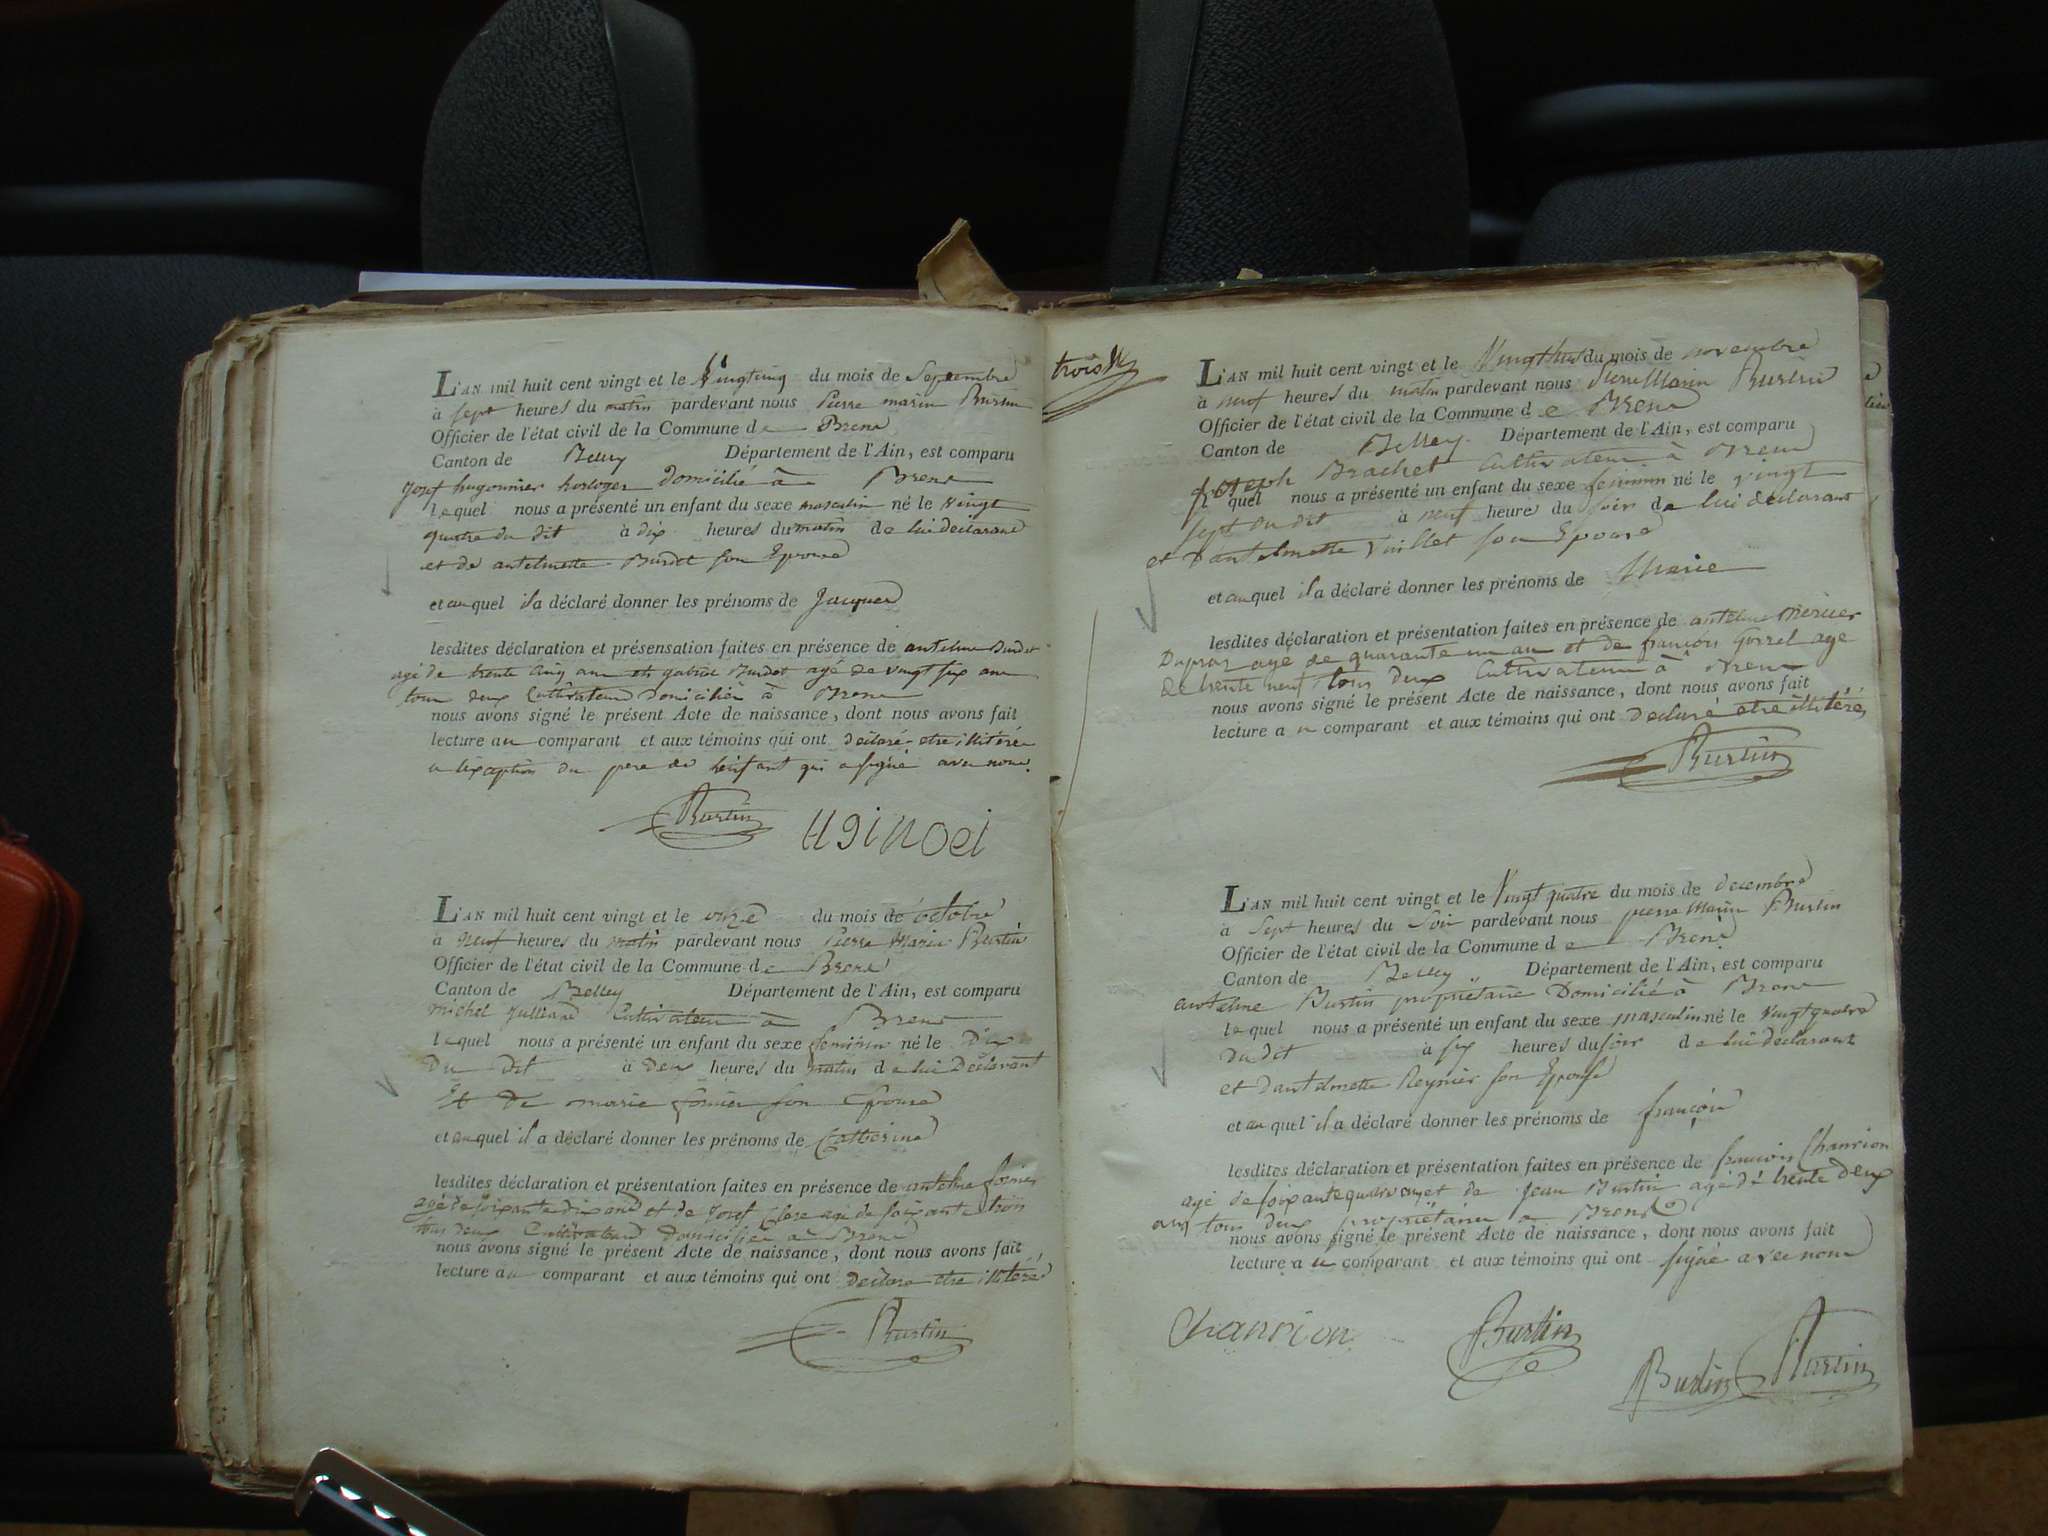 L'AN mil huit cent vingt et le Vingtcinq du mois de Septembre
à sept heures du matin pardevant nous Pierre marin Burtin
Officier de l'état civil de la Commune de Brens
Canton de Belley Département de l'Ain, est comparu
Josef hugonnier horloger domicilié à Brens
lequel nous a présenté un enfant du sexe masculin né le vingt
quatre du dit à dix heures du matin de lui declarant
et de antelmette Burdet son Epouse
et auquel il a déclaré donner les prénoms de Jacques
lesdites déclaration et présensation faites en présence de antelme Burdet
agé de trente cinq ans et gabriel Burdet agé de vingt six ans
tous deux Cultivateurs Domiciliés à Brens
nous avons signé le présent Acte de naissance, dont nous avons fait
lecture au comparant et aux témoins qui ont déclaré etre illitérés
a lexception du pere de lenfant qui a signé avec nous.
Burtin Uginoei
L'AN mil huit cent vingt et le onze du mois de octobre
à neuf heures du matin pardevant nous Pierre Marin Burtin
Officier de l'état civil de la Commune de Brens
Canton de Belley Département de l'Ain, est comparu
michel Julliand Cultivateur à Brens
lequel nous a présenté un enfant du sexe feminin né le Dix
Du Dit à deux heures du matin de lui Déclarant
Et de marie son Epouse
et auquel il a déclaré donner les prénoms de Catherine
lesdites déclaration et présentation faites en présence de antelme
agé de soixante dix ans et de Josef Clerc agé de soixante trois
tous deux Cultivateurs domiciliés à Brens
nous avons signé le présent Acte de naissance, dont nous avons fait
lecture au comparant et aux témoins qui ont déclaré etre illitérés
Burtin
trois
L'AN mil huit cent vingt et le Vingthuit du mois de novembre
à neuf heures du matin pardevant nous Pierre Marin Burtin
Officier de l'état civil de la Commune de Brens
Canton de Belley Département de l'Ain, est comparu
Joseph Brachet Cultivateur à Brens
lequel nous a présenté un enfant du sexe feminin né le vingt
sept du dit à neuf heures du soir de lui déclarant
et Dantelmette Vuillet son Epouse
et auquel il a déclaré donner les prénoms de Marie
lesdites déclaration et présentation faites en présence de antelme Mercier
Dupraz agé de quarante un an et de françois Gorrel agé
de trente neuf tous deux Cultivateurs à Brens
nous avons signé le présent Acte de naissance, dont nous avons fait
lecture au comparant et aux témoins qui ont déclaré etre illitérés
Burtin
L'AN mil huit cent vingt et le Vingt quatre du mois de decembre
à Sept heures du Soir pardevant nous pierre Marin Burtin
Officier de l'état civil de la Commune de Brens
Canton de Belley Département de l'Ain, est comparu
antelme Burtin propriétaire Domicilié à Brens
lequel nous a présenté un enfant du sexe masculin né le Vingtquatre
du dit à six heures du soir de lui déclarant
et dantelmette Reynier son Epouse
et auquel il a déclaré donner les prénoms de françois
lesdites déclaration et présentation faites en présence de francois Chanrion
agé de soixante quatre ans et de Jean Burtin agé de trente deux
ans tous deux propriétaires a Brens
nous avons signé le présent Acte de naissance, dont nous avons fait
lecture au comparant et aux témoins qui ont signé avec nous
Chanrion Burtin
Burtin Burtin